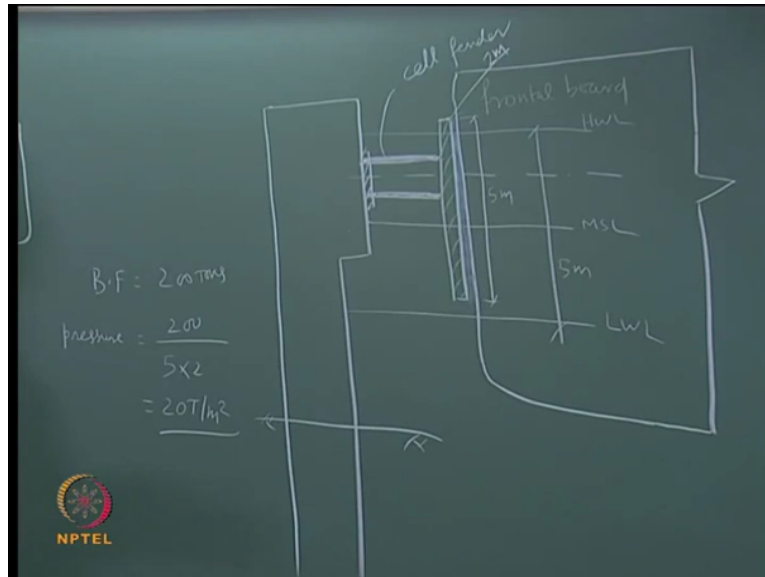 cell fender
2m
frontal board
HWL
5m
MSL
5m
LWL
B.F = 200 Tons
pressure = 200
5x2
= 20T/m2
NPTEL